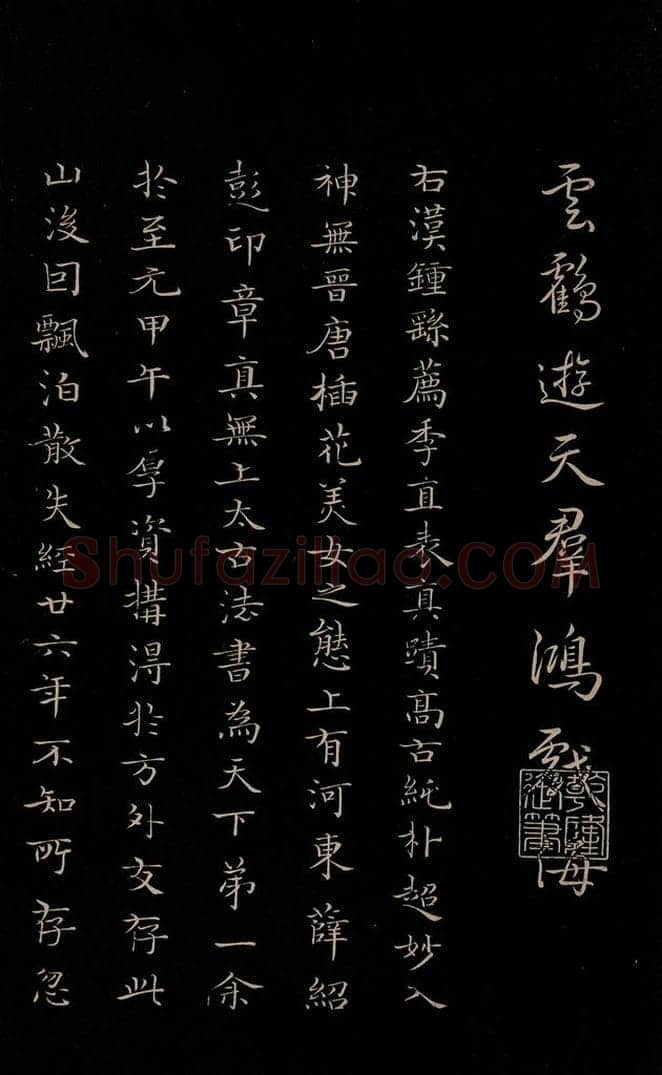 雲鶴遊天羣鴻戲海
乾隆
右漢鍾繇薦季直表真蹟高古純朴超妙入
神無晉唐插花美女之態上有河東薛紹
彭印章真無上太古法書為天下第一余
於至元甲午以厚資購得於方外友存此
山後因飄泊散失經廿六年不知所存忽
Shufaziliao.COM